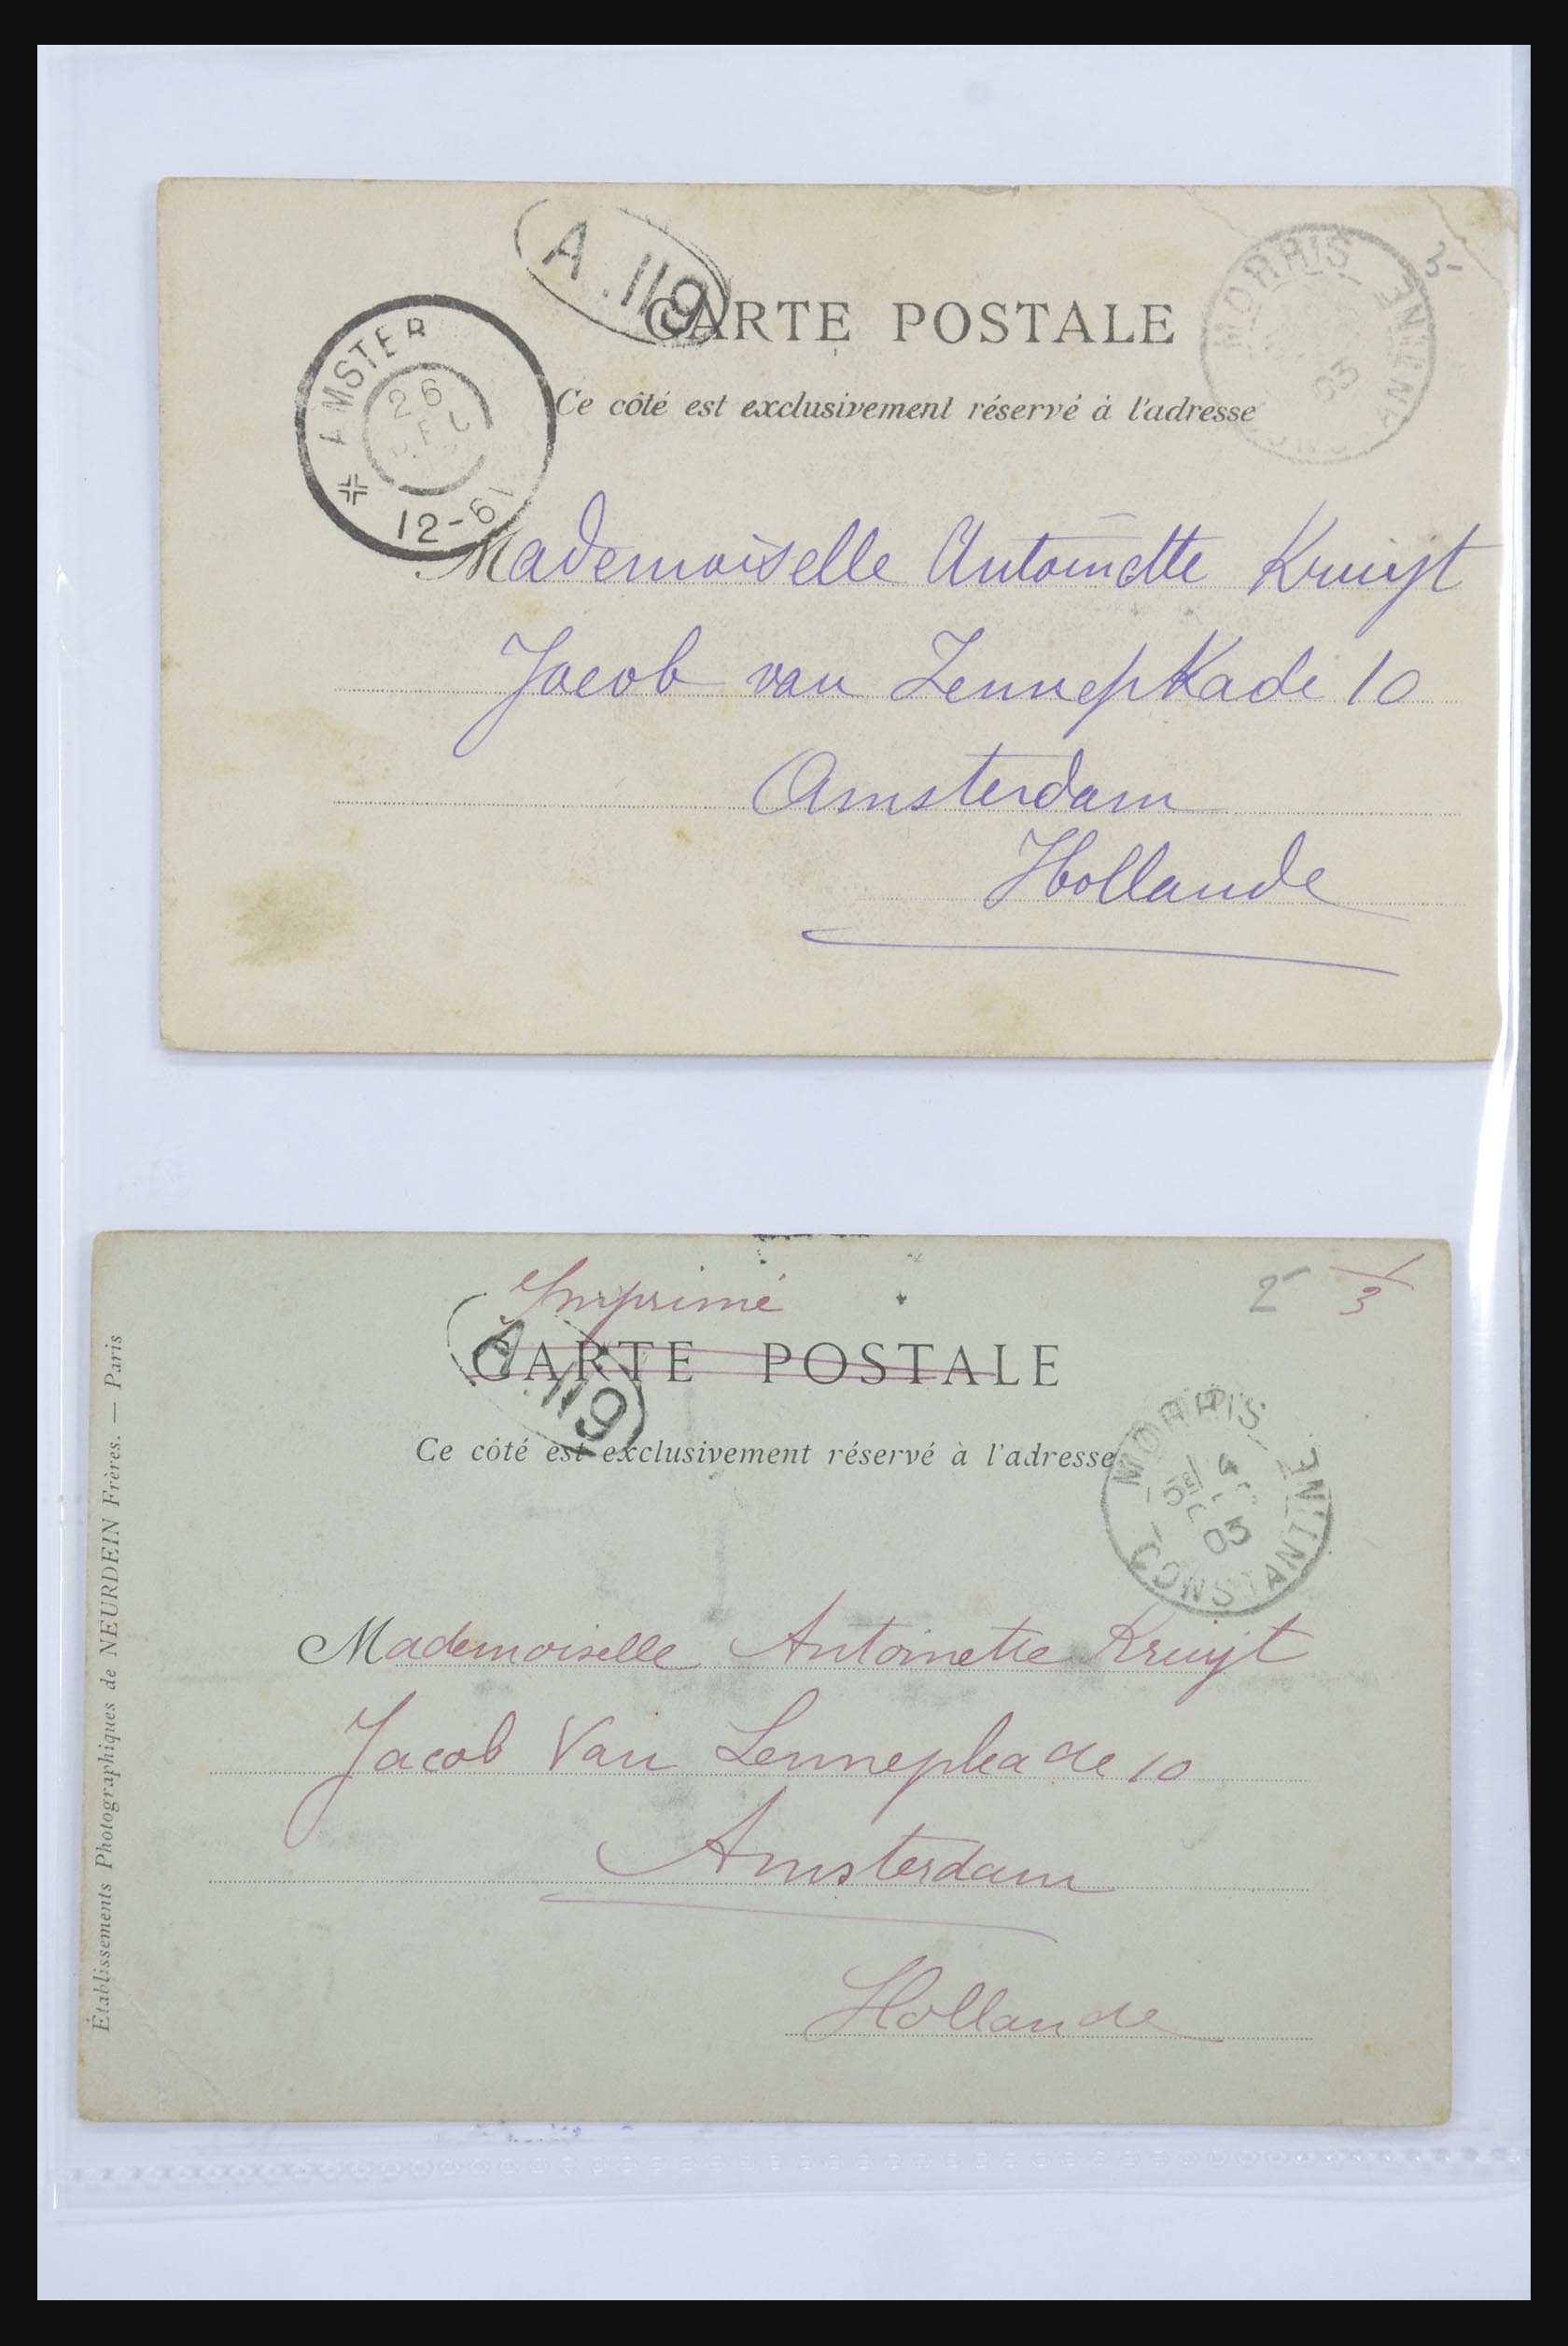 A.119
MORRIS
CONSTANTINE
03
3-
CARTE POSTALE
AMSTER
26
12-6
Ce côté est exclusivement réservé à l'adresse
Mademoiselle Antoinette Kruijt
Jacob van LennepKade 10
Amsterdam
Hollande
Imprimé
2-
3
CARTE POSTALE
A.119
Ce côté est exclusivement réservé à l'adresse
MORRIS
5E/ 4
03
CONSTANTINE
Mademoiselle Antoinette Kruijt
Jacob Van Lennepkade 10
Amsterdam
Hollande
Établissements Photographiques de NEURDEIN Frères. — Paris